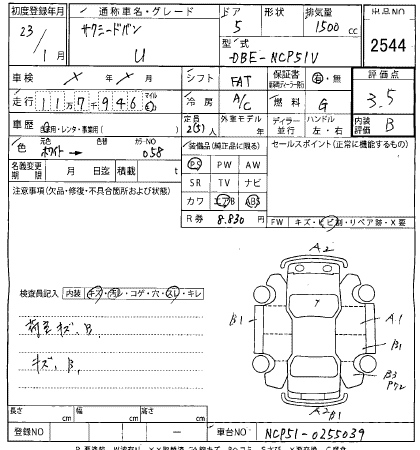 初度登録年月 通称車名・グレード ドア 形状 排気量 出品NO
23/1月 サクシードバン U 5 1500cc 2544
型式 DBE-NCP51V
車検 × 年 × 月 シフト FAT 保証書 有・無 評価点 3.5
走行 117946 マイル 冷房 A/C 燃料 G
車歴 自家用・レンタ・事業用( ) 定員 2(5)人 外車モデル 年 ディーラー 並行 ハンドル 左・右 内装評価 B
色 元色 ホワイト → 色替 カラーNO 058 装備品(純正品に限る) セールスポイント(正常に機能するもの)
名義変更期限 月 日迄 積載 t PS PW AW
注意事項(欠品・修復・不具合箇所および状態) SR TV ナビ
カワ エアB ABS
R券 8,830円 FW キズ・ヒビ割・リペア跡・X要
A2
検査員記入 内装 キズ・汚レ・コゲ・穴・スレ・キレ
荷室キズ、B、
キズ、B、
B1 7 A1
B1
B3
P72
A2 B1
長さ cm 幅 cm 高さ cm
登録NO — 車台NO NCP51-0255039